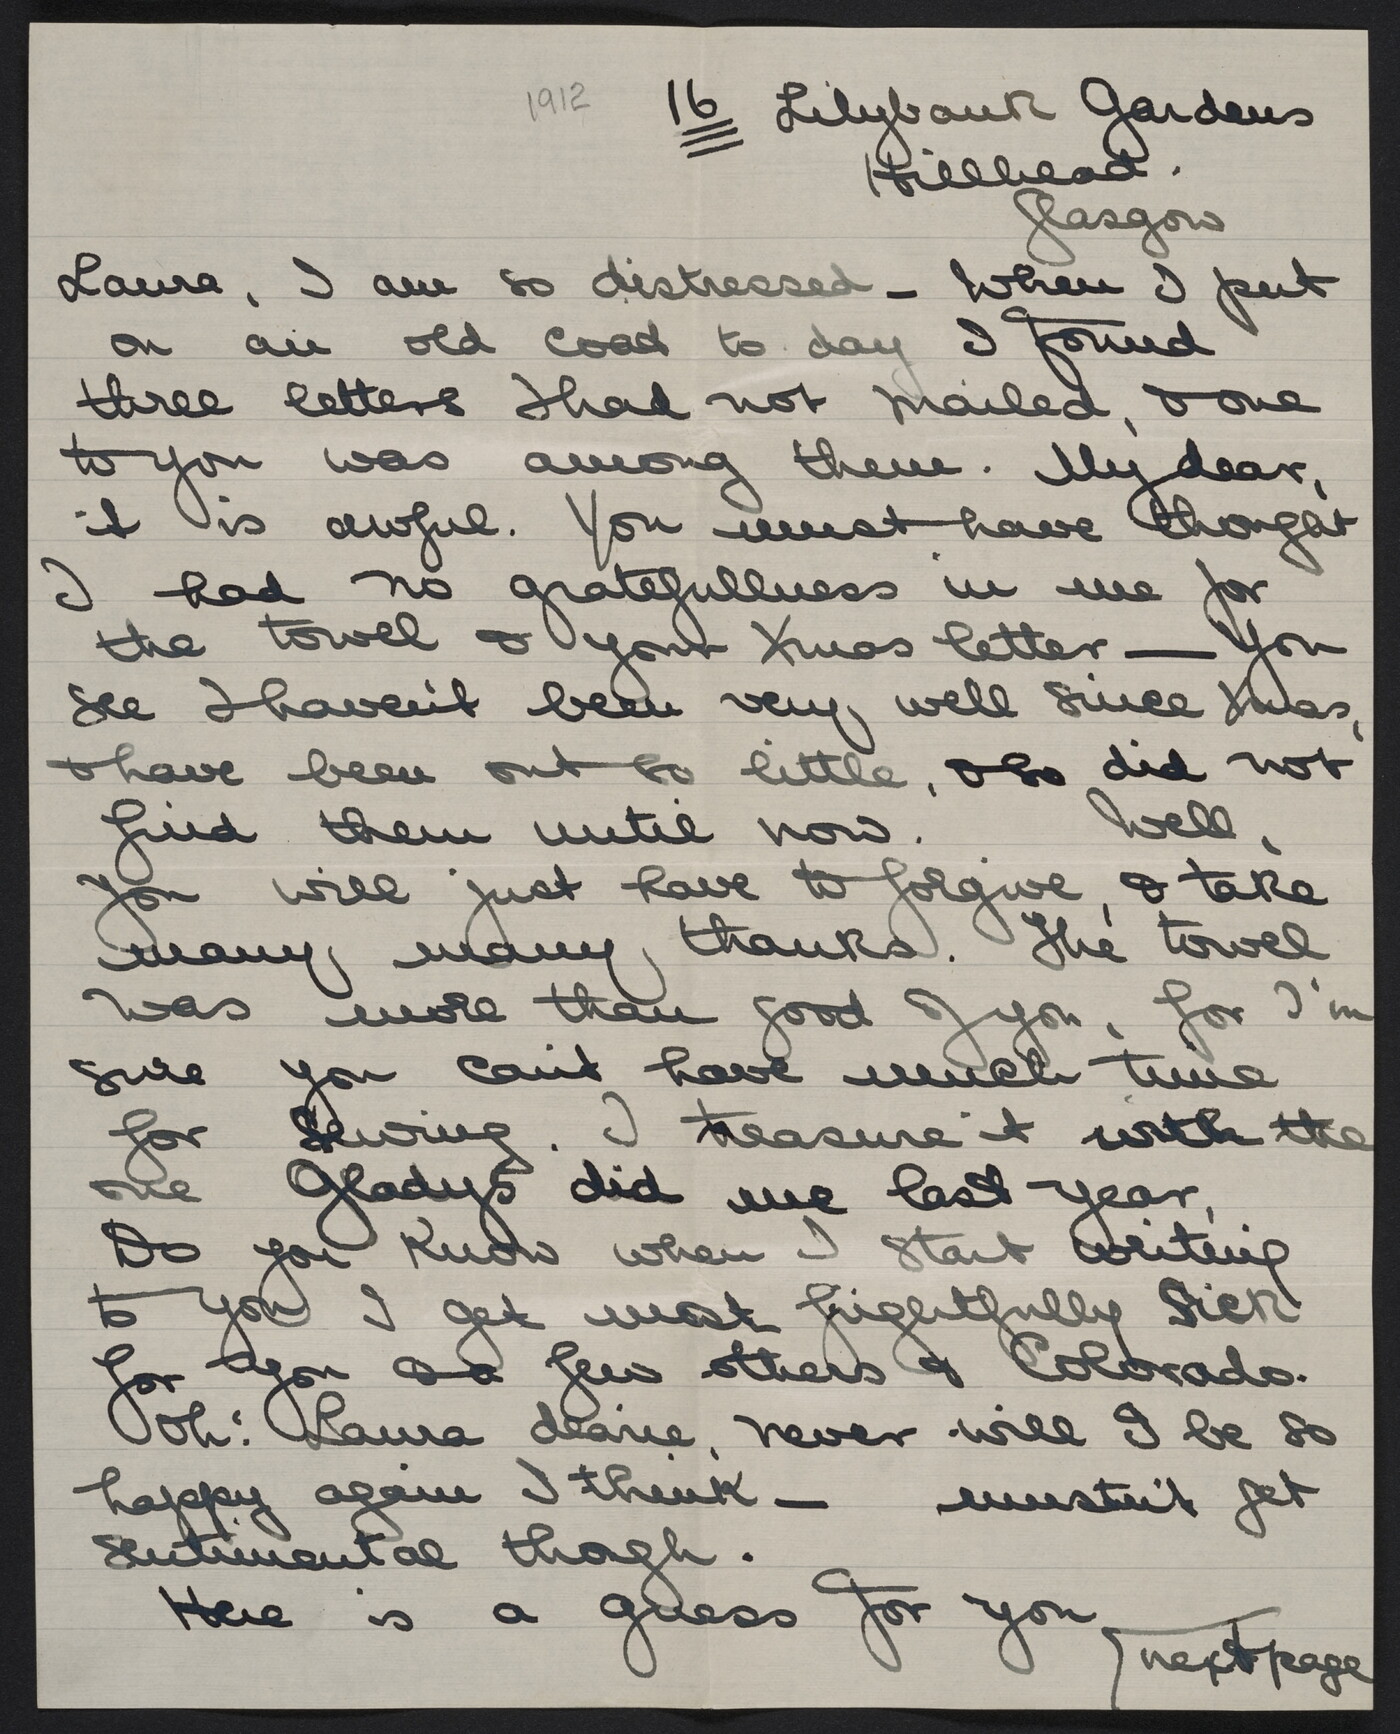 1912
16 Lilybank Gardens
Hillhead.
Glasgow
Laura, I am so distressed - When I put
on an old coat to day I found
three letters I had not mailed, & one
to you was among them. My dear,
it is awful. You must have thought
I had no gratefullness in me for
the towel & your Xmas letter — You
see I haven't been very well since Xmas,
& have been out so little, & so did not
find them until now. Well,
you will just have to forgive, & take
many, many, thanks. The towel
was more than good of you, for I'm
sure you can't have much time
for sewing. I treasure it with the
one Gladys did me last year,
Do you know when I start writing
to you I get most frightfully sick
for you & a few others & Colorado.
Oh! Laura dearie, never will I be so
happy again I think - mustn't get
sentimental thogh.
Here is a guess for you
next page